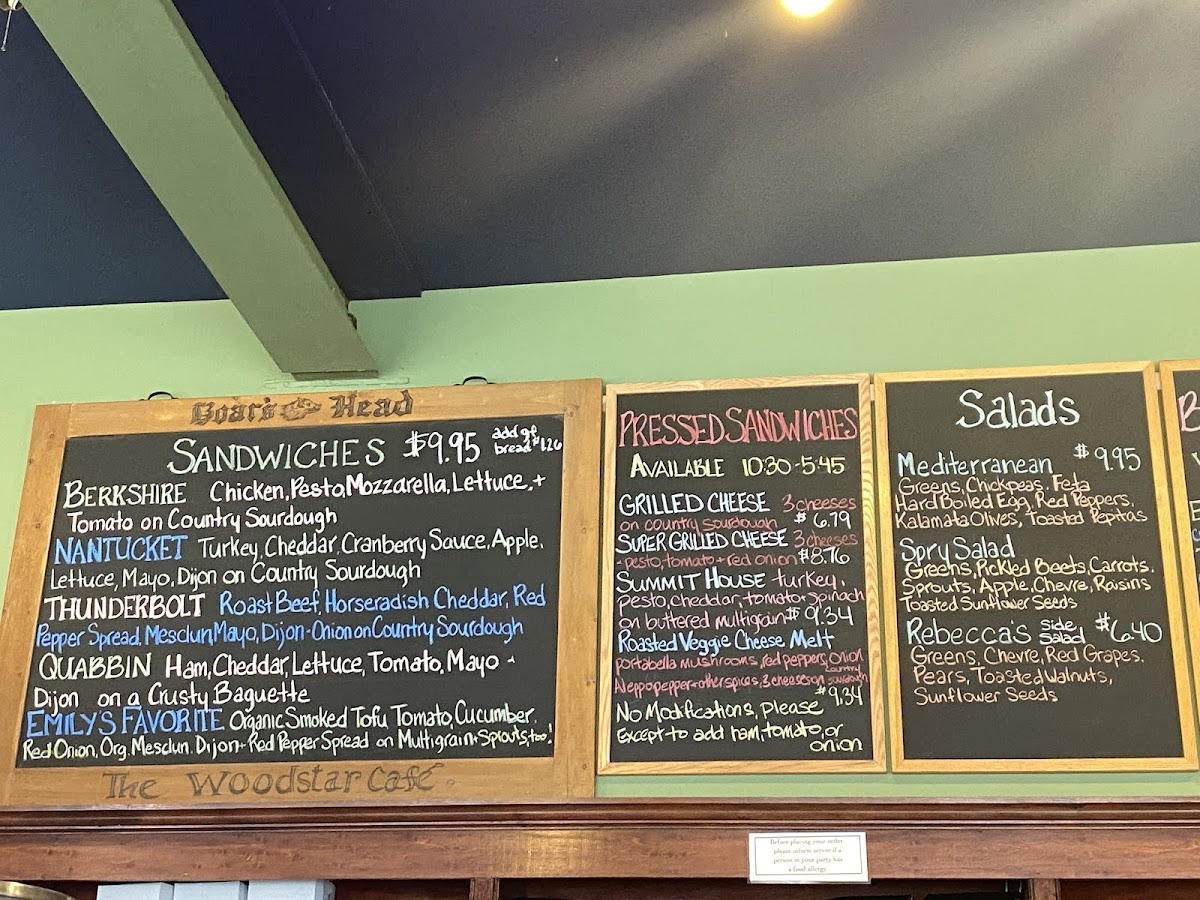 Boar's Head
SANDWICHES $9.95 add gf
bread $1.26
BERKSHIRE Chicken, Pesto, Mozzarella, Lettuce, +
Tomato on Country Sourdough
NANTUCKET Turkey, Cheddar, Cranberry Sauce, Apple,
Lettuce, Mayo, Dijon on Country Sourdough
THUNDERBOLT Roast Beef, Horseradish Cheddar, Red
Pepper Spread, Mesclun, Mayo, Dijon - Onion on Country Sourdough
QUABBIN Ham, Cheddar, Lettuce, Tomato, Mayo -
Dijon on a Crusty Baguette
EMILY'S FAVORITE Organic Smoked Tofu Tomato, Cucumber,
Red Onion, Org. Mesclun, Dijon + Red Pepper Spread on Multigrain + Sprouts, too!
The Woodstar Café.
PRESSED SANDWICHES
AVAILABLE 10:30-5:45
GRILLED CHEESE 3 cheeses
on country sourdough $6.79
SUPER GRILLED CHEESE 3 cheeses
- pesto, tomato + red onion $8.76
SUMMIT HOUSE turkey,
pesto, cheddar, tomato + spinach
on buttered multigrain $9.34
Roasted Veggie Cheese Melt
portabella mushrooms, red peppers, onion
Aleppo pepper + other spices, 3 cheeses on country sourdough
$9.34
No Modifications, please
Except to add ham, tomato, or
onion
Salads
Mediterranean $9.95
Greens, Chickpeas, Feta
Hard Boiled Egg, Red Peppers,
Kalamata Olives, Toasted Pepitas
Spry Salad
Greens, Pickled Beets, Carrots,
Sprouts, Apple, Chevre, Raisins
Toasted Sunflower Seeds
Rebecca's side salad $6.40
Greens, Chevre, Red Grapes,
Pears, Toasted Walnuts,
Sunflower Seeds
Before placing your order,
please inform server if a
person in your party has
a food allergy.